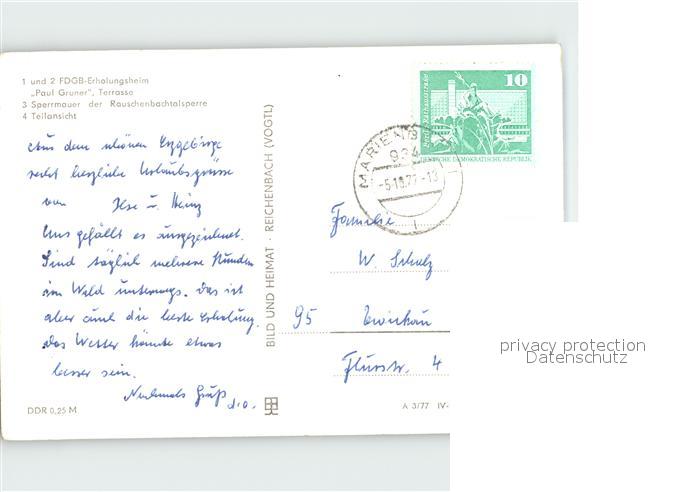 1 und 2 FDGB-Erholungsheim
„Paul Gruner", Terrasse
3 Sperrmauer der Rauschenbachtalsperre
4 Teilansicht
Aus dem schönen Erzgebirge
recht herzliche Urlaubsgrüsse
von Ilse u. Heinz
Uns gefällt es ausgezeichnet.
Sind täglich mehrere Stunden
im Wald unterwegs. Das ist
aber auch die beste Erholung.
Das Wetter könnte etwas
besser sein.
Nochmals Gruß
d.o.
DDR 0,25 M
BILD UND HEIMAT · REICHENBACH (VOGTL)
A 3/77 IV-
10
Berlin, Rathausstraße
DEUTSCHE DEMOKRATISCHE REPUBLIK
MARIENB
934
-5.10.77-13
Familie
W. Scholz
95 Zwickau
Flurstr. 4
privacy protection
Datenschutz